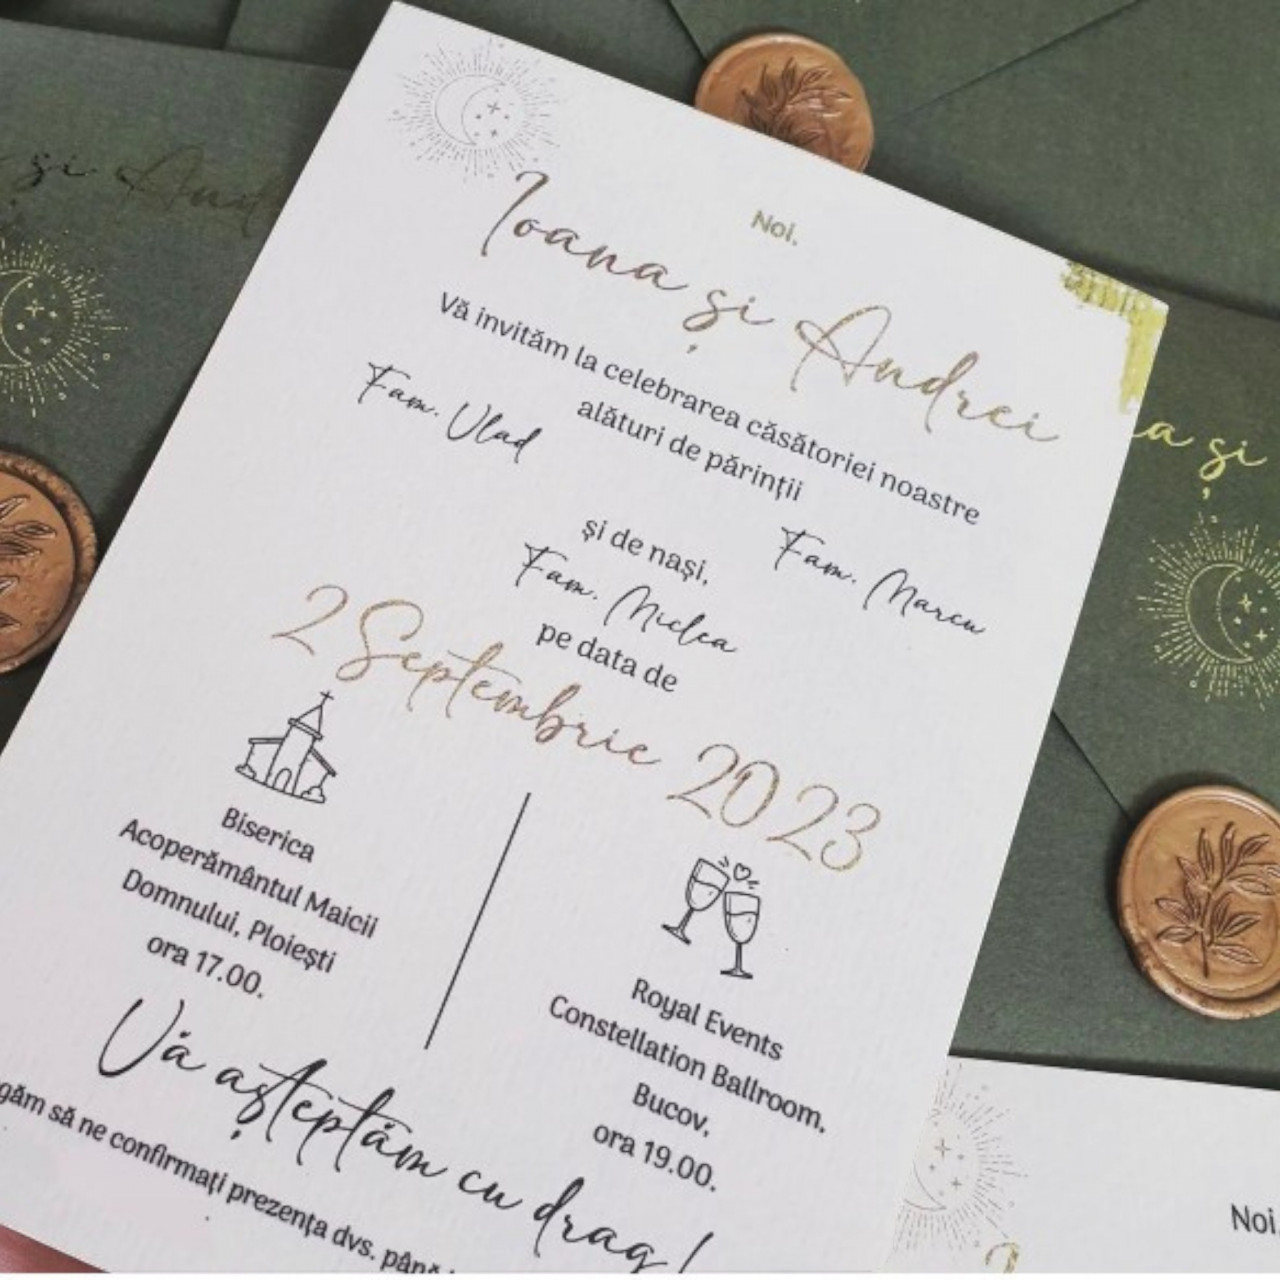 Noi,
Ioana și Andrei
Vă invităm la celebrarea căsătoriei noastre
alături de părinții
Fam. Vlad
Fam. Marcu
și de nași,
Fam. Miclea
pe data de
2 Septembrie 2023
Biserica
Acoperământul Maicii
Domnului, Ploiești
ora 17.00.
Royal Events
Constellation Ballroom,
Bucov,
ora 19.00.
Vă așteptăm cu drag!
găm să ne confirmați prezența dvs. până
și And
a și
Noi,